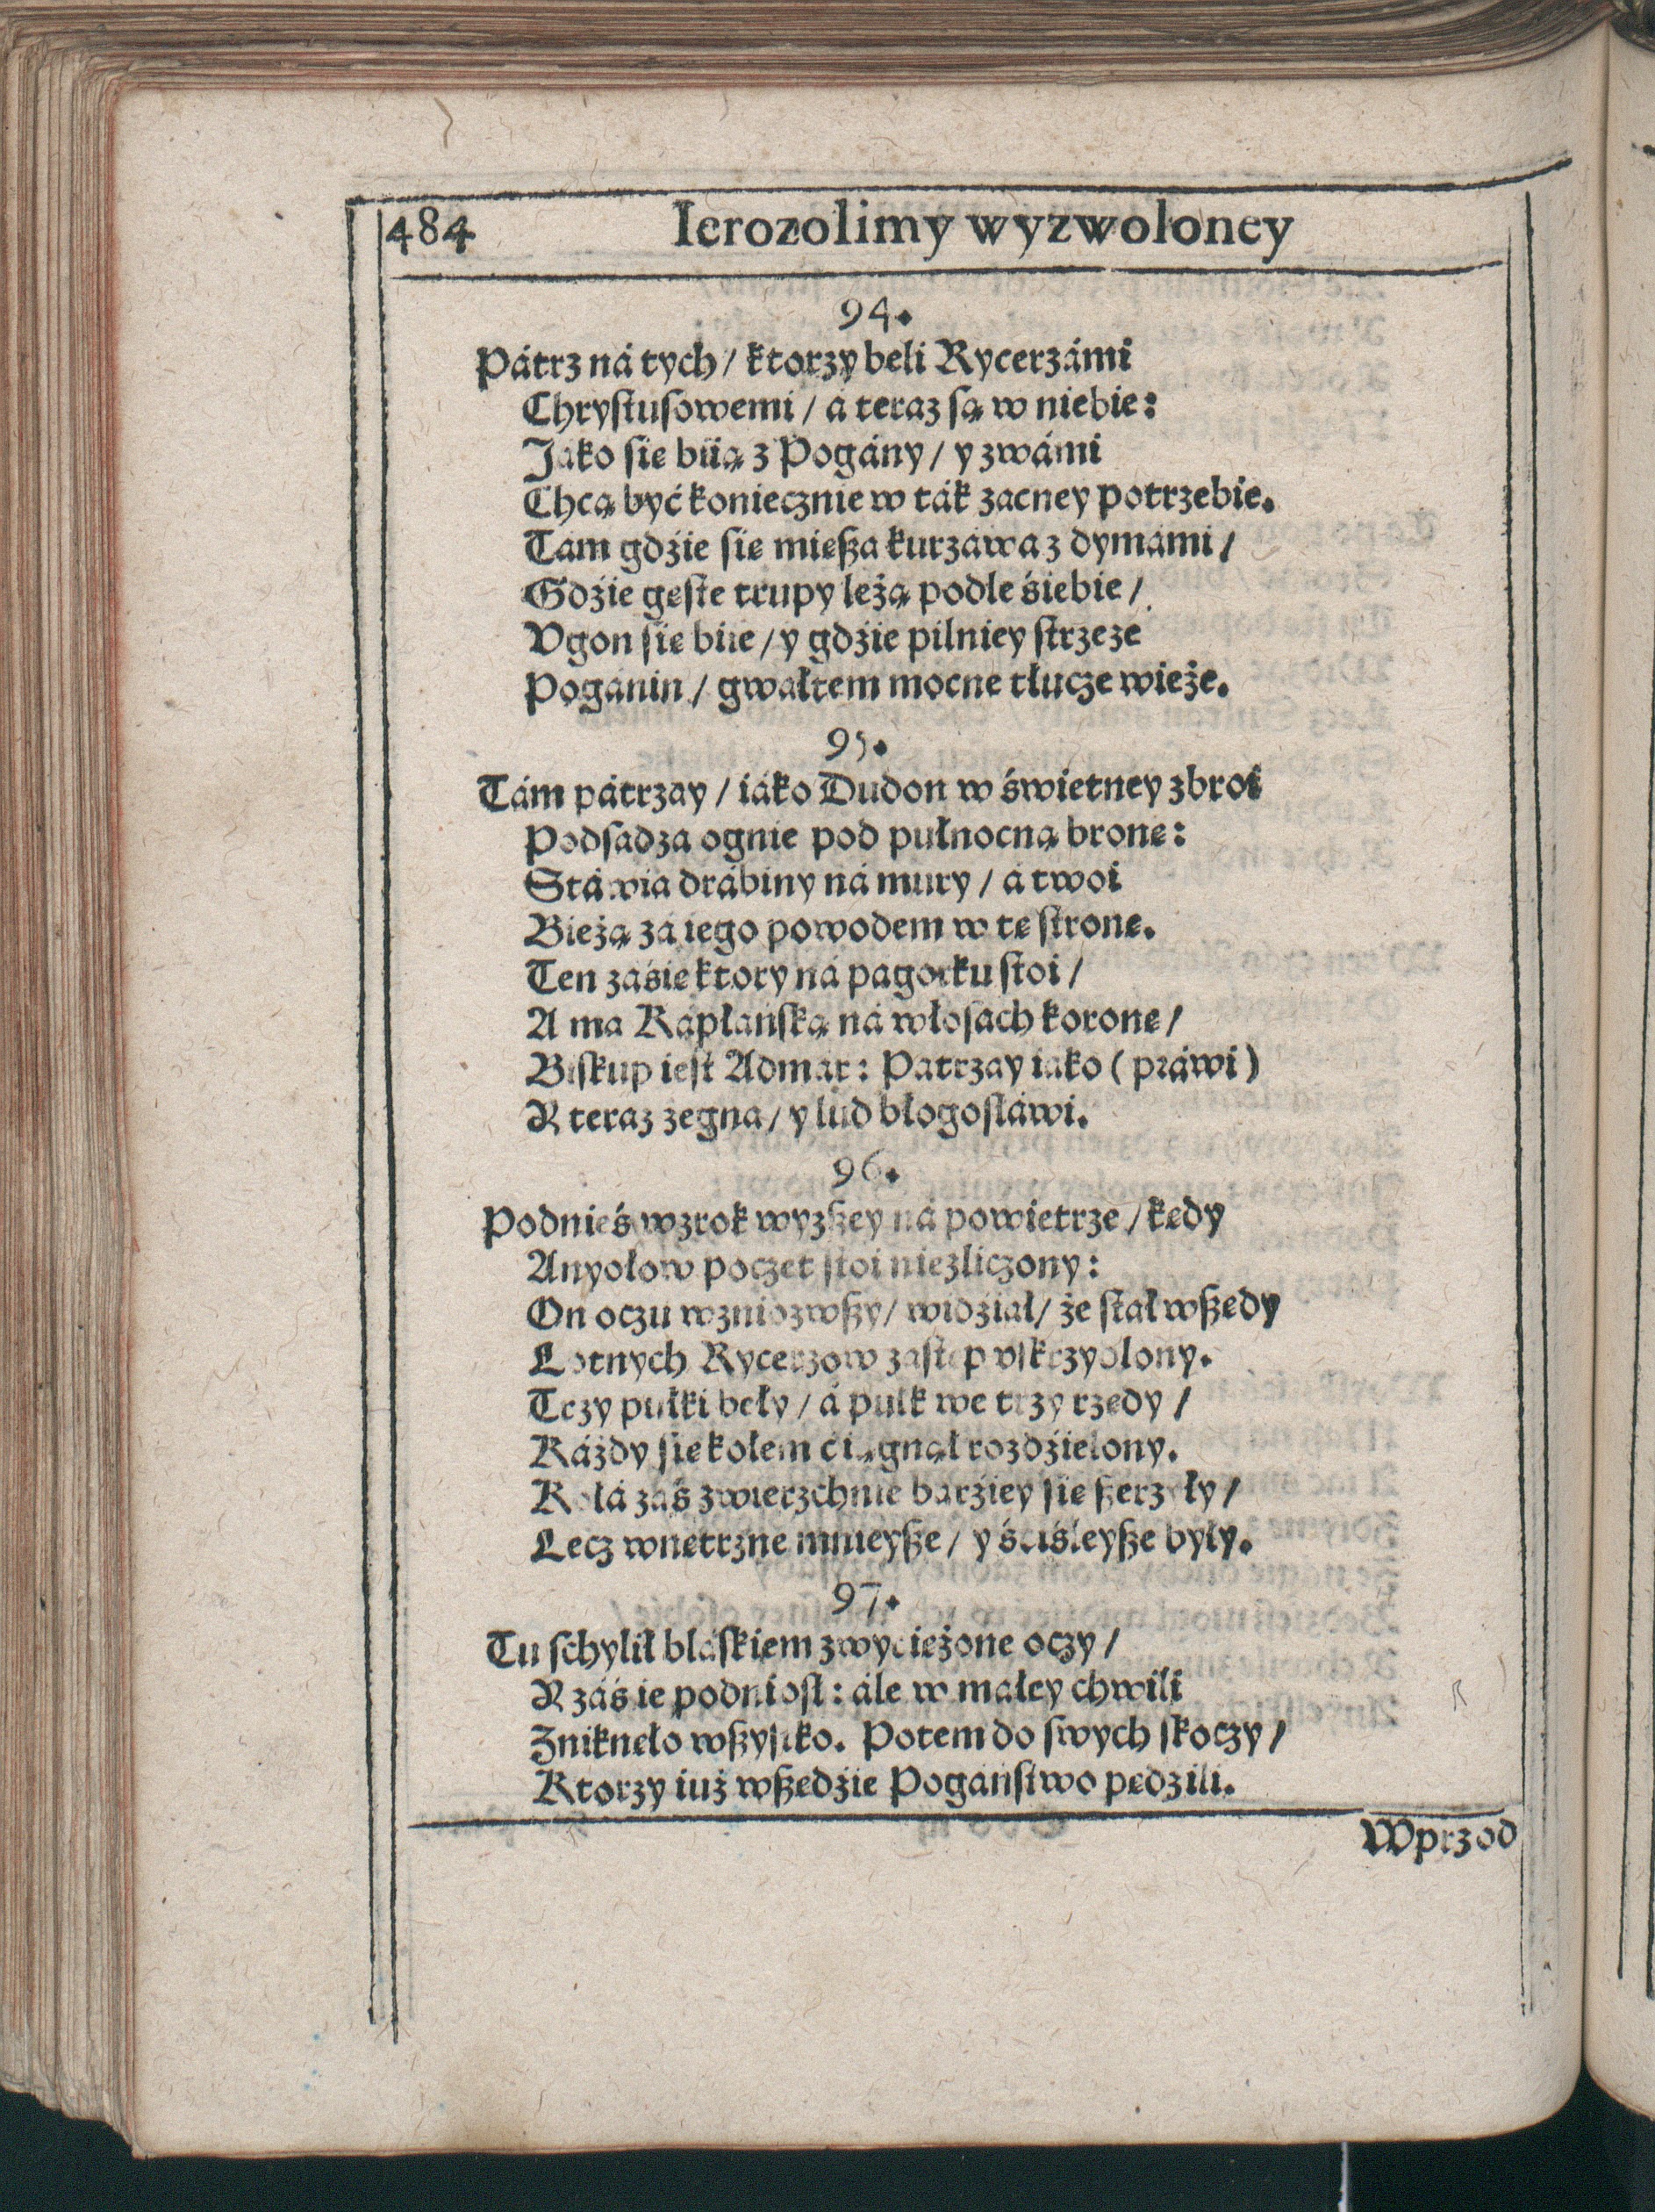 484 Ierozolimy wyzwoloney
94.
Pátrz ná tych / ktorzy beli Rycerzámi
Chrystusowemi / á teraz są w niebie:
Jáko sie biią z Pogány / y z wámi
Chcą być koniecznie w ták zacney potrzebie.
Tám gdźie sie mießa kurzáwa z dymámi /
Gdźie gęste trupy leżą podle śiebie /
Vgon sie biie / y gdźie pilniey strzeże
Pogánin / gwałtem mocne tłucze wieże.
95.
Tám pátrzay / iáko Dudon w świetney zbroi
Podsadza ognie pod pułnocną bronę:
Stáwia drábiny ná mury / á twoi
Bieżą zá iego powodem w tę stronę.
Ten záśie ktory ná pagorku stoi /
A ma Kápłáńską ná włosach koronę /
Biskup iest Admar: Pátrzay iáko (práwi)
R teraz żegna / y lud błogosłáwi.
96.
Podnieś wzrok wyzßey ná powietrze / kędy
Anyołow poczet stoi niezliczony:
On oczu wzniozwßy / widźiał / że stał wßędy
Lotnych Rycerzow zastęp vskrzydlony.
Trzy pułki beły / á pułk we trzy rzędy /
Káżdy sie kołem ćiągnął rozdźielony.
Kołá záś zwierzchnie bárźiey sie ßerzyły /
Lecz wnętrzne mnieyße / y śćiśleyße były.
97.
Tu schylił bláskiem zwyćiężone oczy /
R záśie podniosł: ále w małey chwili
Zniknęło wßystko. Potem do swych skoczy /
Ktorzy iuż wßędźie Pogáństwo pędzili.
Wprzod